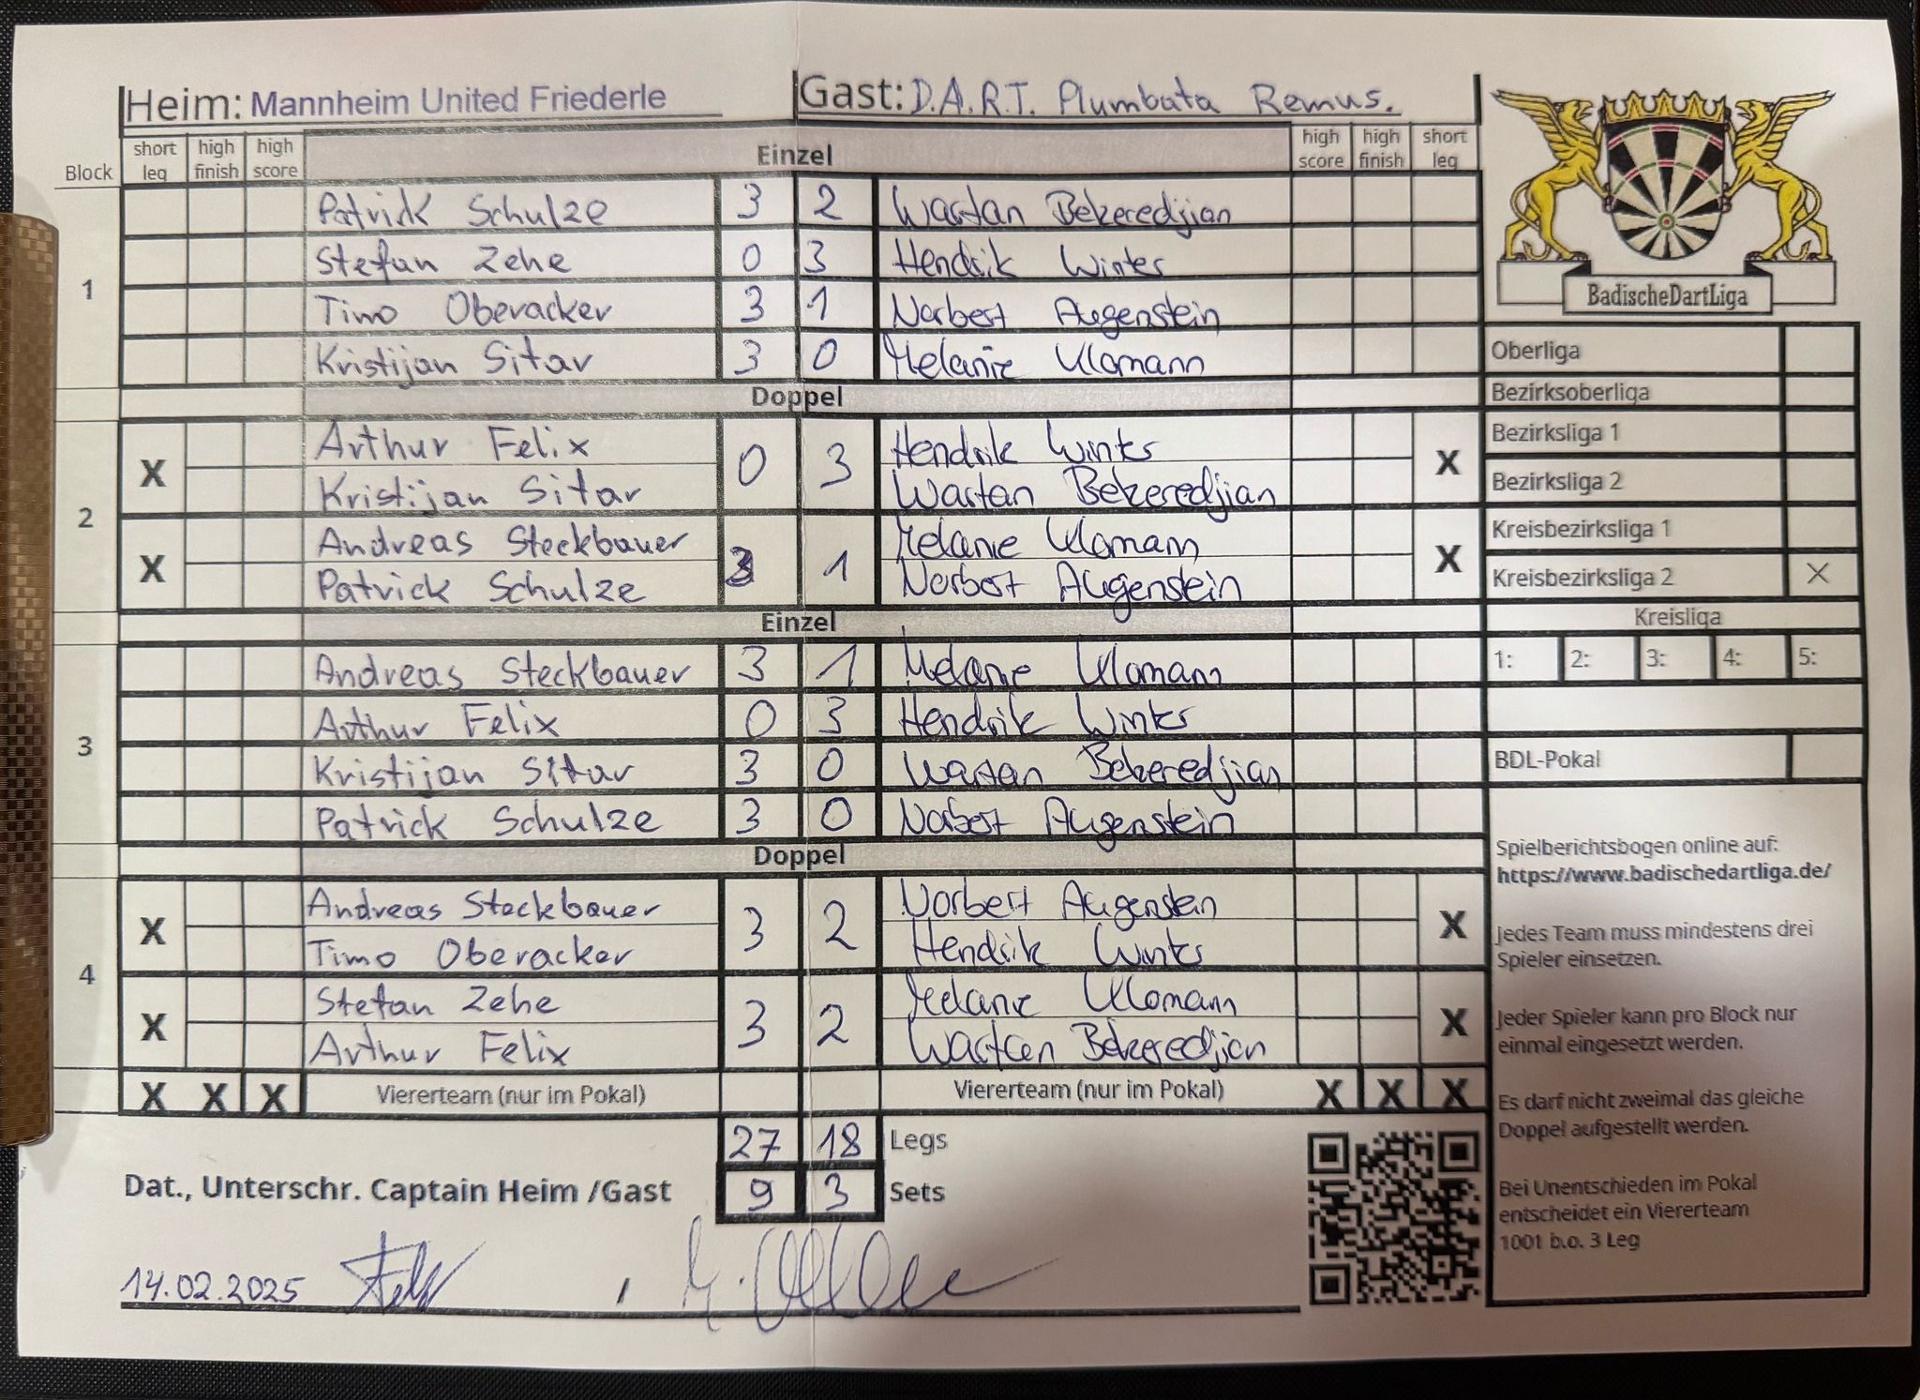 Heim: Mannheim United Friederle Gast: D.A.R.T. Plumbata Remus.
Block short leg high finish high score Einzel high score high finish short leg
1
Patrick Schulze 3 2 Wartan Bekeredjian
Stefan Zehe 0 3 Hendrik Winter
Timo Oberacker 3 1 Norbert Augenstein
Kristijan Sitar 3 0 Melanie
Doppel
2
Arthur Felix
X Kristijan Sitar 0 3 Hendrik Winter
Wartan Bekeredjian X
Andreas Steckbauer
X Patrick Schulze 3 1 Melanie
Norbert Augenstein X
Einzel
3
Andreas Steckbauer 3 1 Melanie
Arthur Felix 0 3 Hendrik Winter
Kristijan Sitar 3 0 Wartan Bekeredjian
Patrick Schulze 3 0 Norbert Augenstein
Doppel
4
Andreas Steckbauer
X Timo Oberacker 3 2 Norbert Augenstein
Hendrik Winter X
Stefan Zehe
X Arthur Felix 3 2 Melanie
Wartan Bekeredjian X
X X X Viererteam (nur im Pokal) Viererteam (nur im Pokal) X X X
27 18 Legs
Dat., Unterschr. Captain Heim /Gast 9 3 Sets
14.02.2025
BadischeDartLiga
Oberliga
Bezirksoberliga
Bezirksliga 1
Bezirksliga 2
Kreisbezirksliga 1
Kreisbezirksliga 2 X
Kreisliga
1: 2: 3: 4: 5:
BDL-Pokal
Spielberichtsbogen online auf:
https://www.badischedartliga.de/
Jedes Team muss mindestens drei
Spieler einsetzen.
Jeder Spieler kann pro Block nur
einmal eingesetzt werden.
Es darf nicht zweimal das gleiche
Doppel aufgestellt werden.
Bei Unentschieden im Pokal
entscheidet ein Viererteam
1001 b.o. 3 Leg